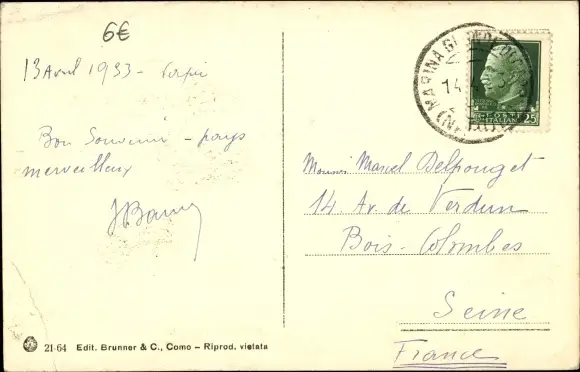 6€
13 Avril 1933 -
Bon Souvenir - pays
merveilleux
21-64 Edit. Brunner & C., Como - Riprod. vietata
MARINA GR
14
POSTE ITALIANE
25
Monsieur Marcel Delpouget
14 Av. de Verdun
Bois-Colombes
Seine
France